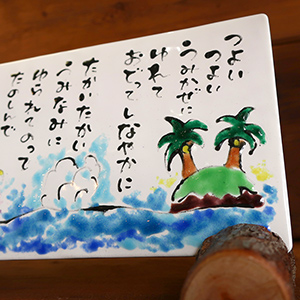 つよい
つよい
うみかぜに
ゆれて
おどってしなやかに
たかいたかい
うみなみに
ゆられてのって
たのしんで